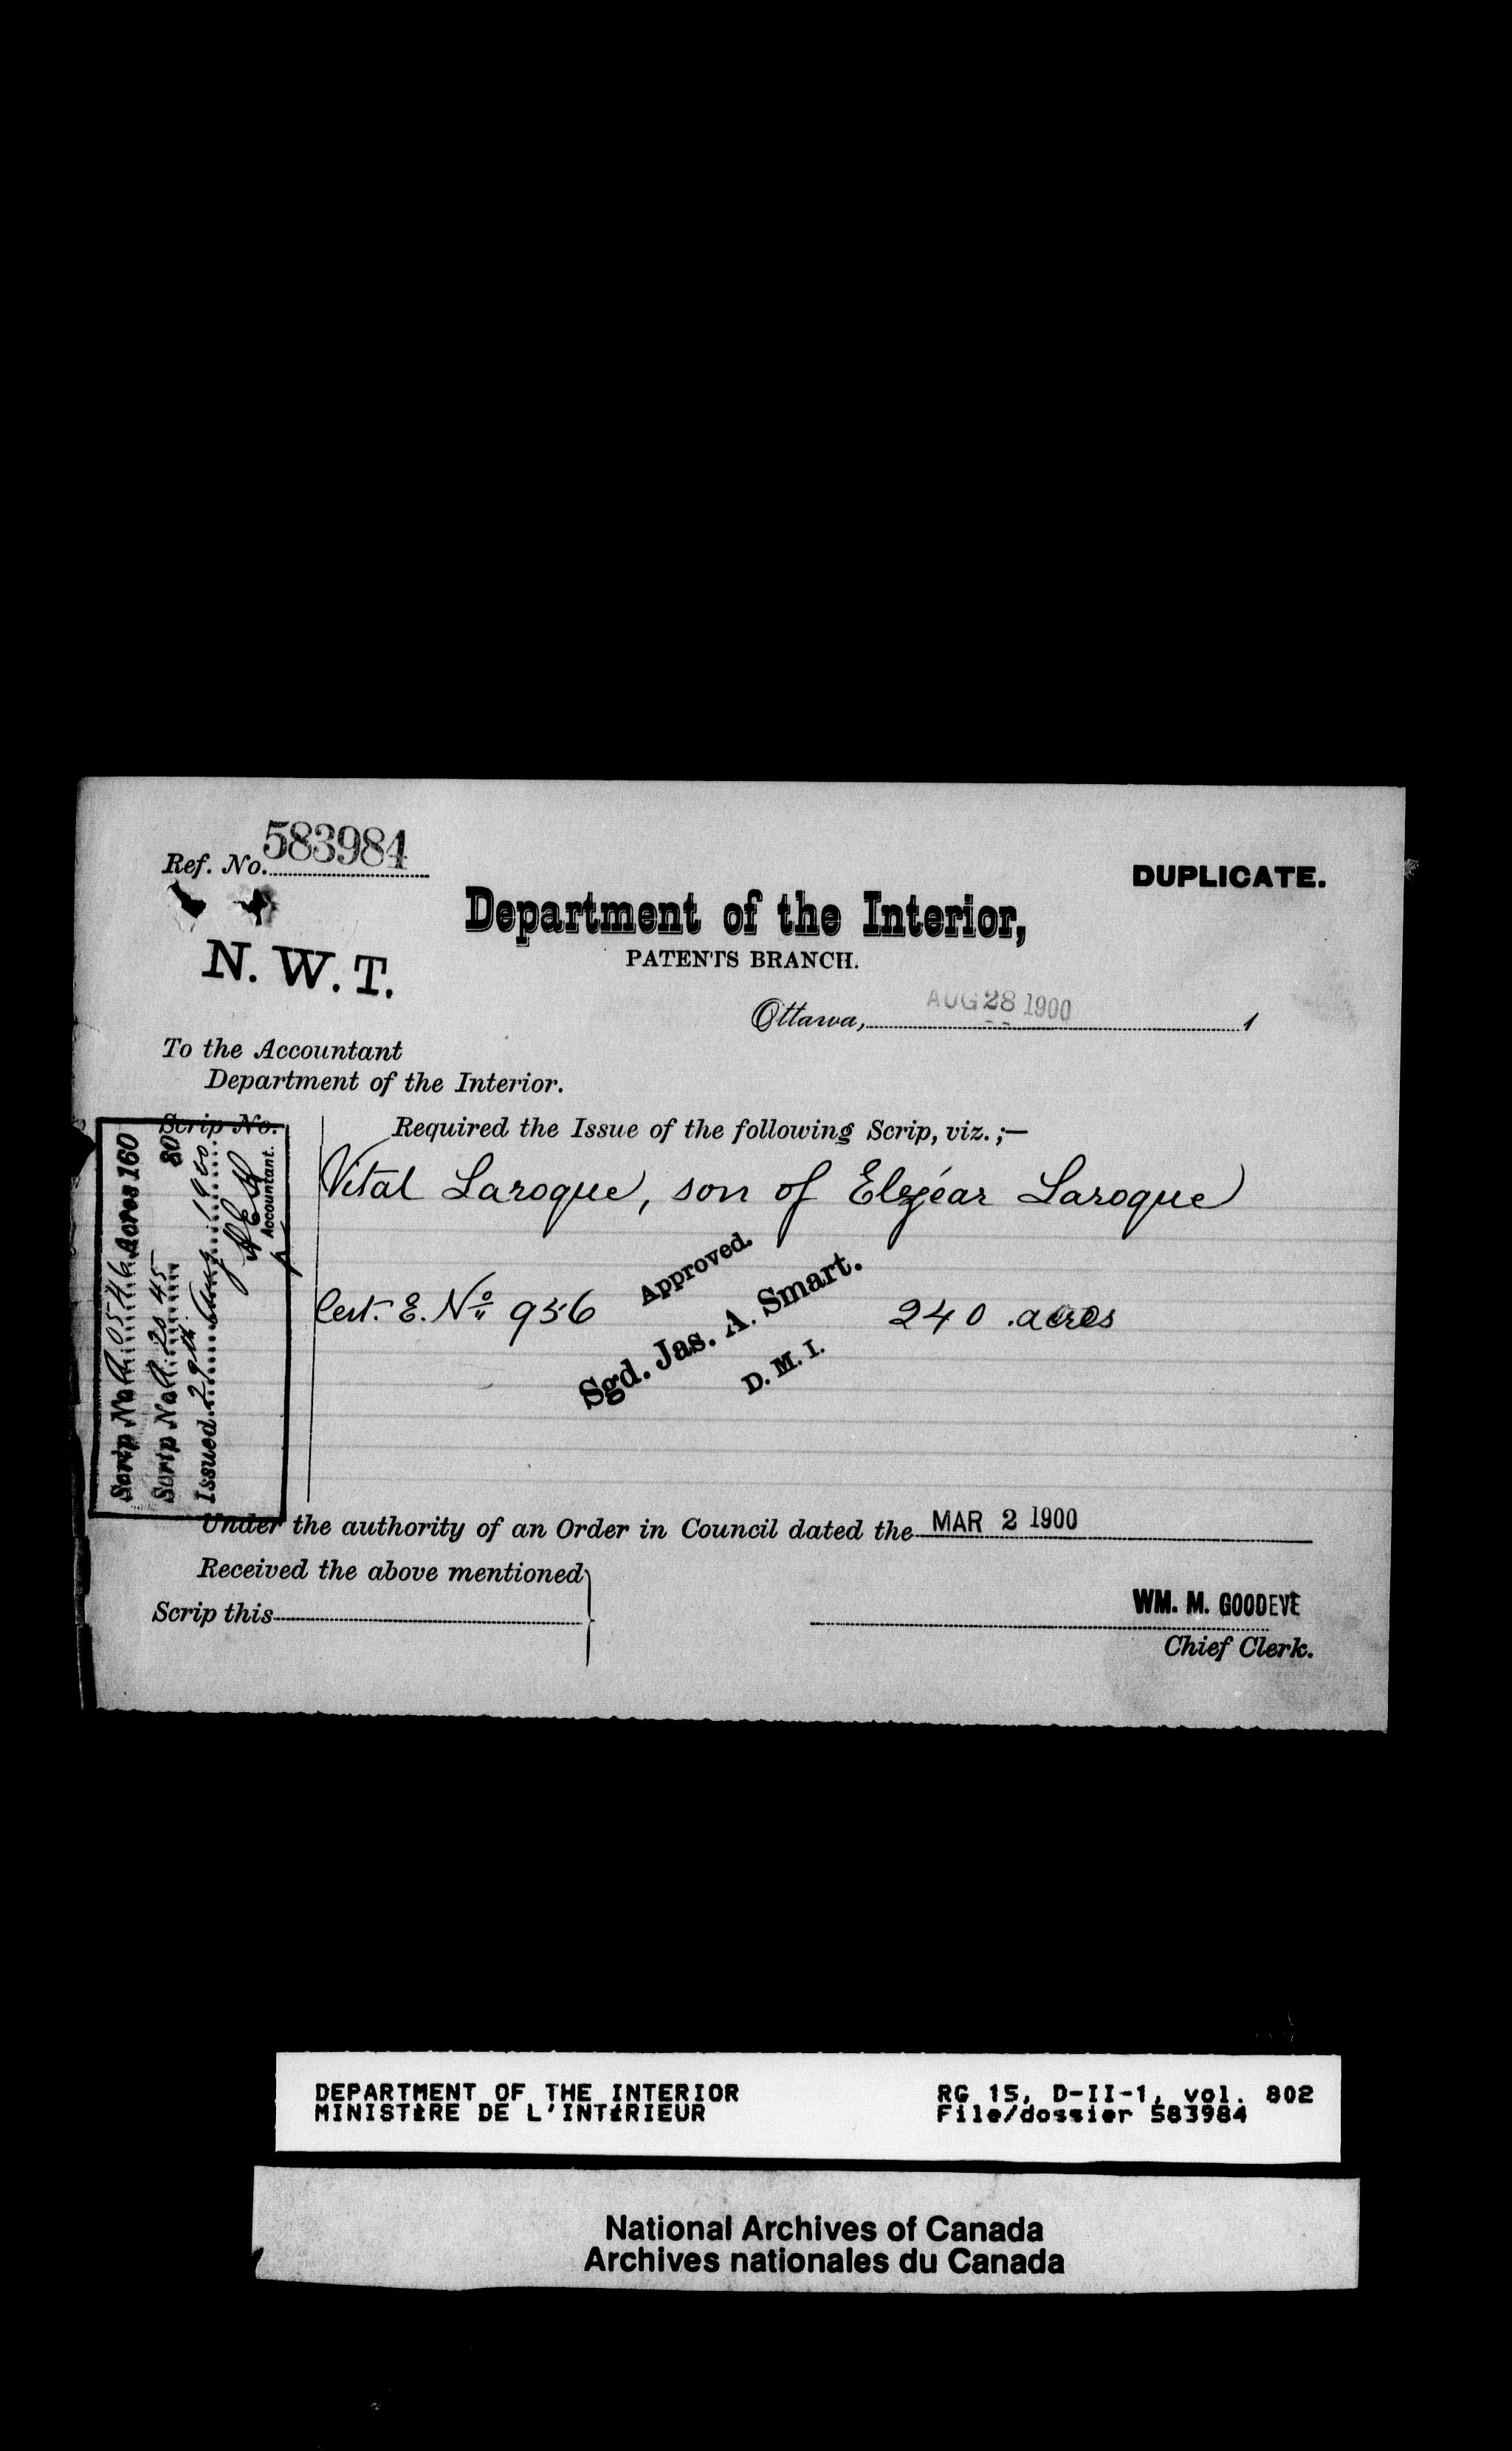 Ref. No. 583984
DUPLICATE.
Department of the Interior,
PATENTS BRANCH.
N. W. T.
Ottawa, AUG 28 1900 1
To the Accountant
Department of the Interior.
Scrip No.
Required the Issue of the following Scrip, viz.;—
Vital Laroque, son of Elzéar Laroque
Cert. E. No 956
240 acres
Approved.
Sgd. Jas. A. Smart.
D. M. I.
Scrip No A. 0546 Acres 160
Scrip No A. 2045 80
Issued 29th Aug. 1900
Accountant.
Under the authority of an Order in Council dated the MAR 2 1900
Received the above mentioned
Scrip this
WM. M. GOODEVE
Chief Clerk.
DEPARTMENT OF THE INTERIOR
MINISTÈRE DE L'INTÉRIEUR
RG 15, D-II-1, vol. 802
File/dossier 583984
National Archives of Canada
Archives nationales du Canada